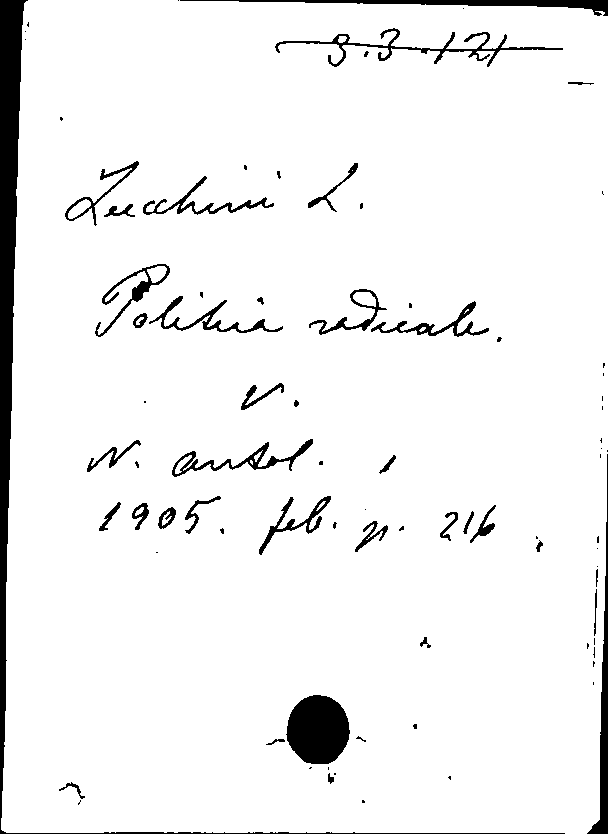 3.3.121
Lucchini L.
Politica radicale.
V.
N. antol.,
1905. feb. p. 216